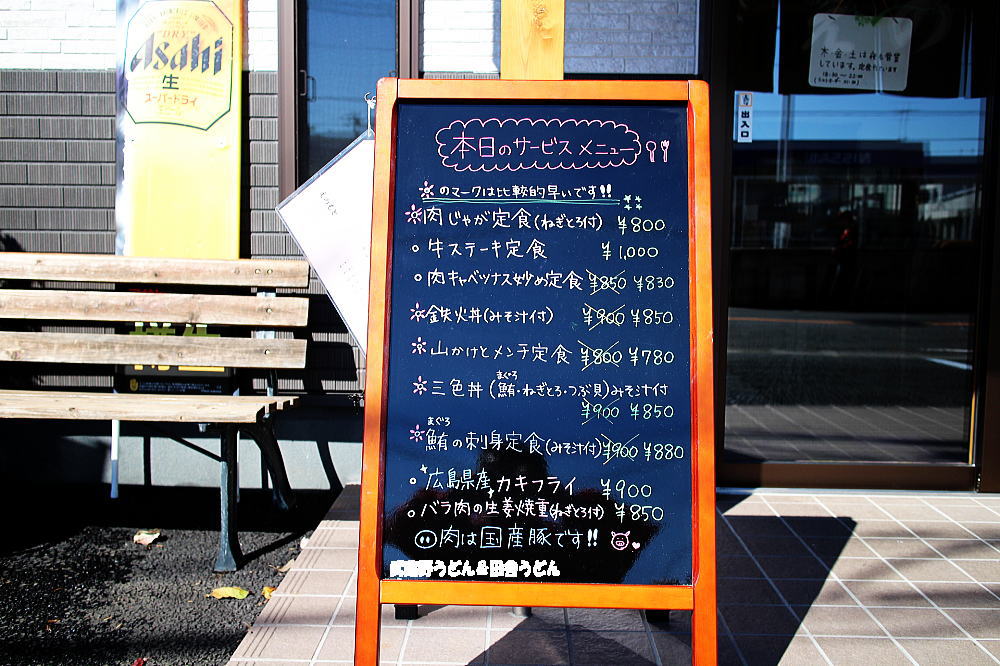 DRY
Asahi
生
スーパードライ
木・金・土は夜も営業
しています。
出入口
本日のサービスメニュー
のマークは比較的早いです!!
肉じゃが定食(ねぎとろ付) ¥800
牛ステーキ定食 ¥1,000
肉キャベツナス炒め定食 ¥850 ¥830
鉄火丼(みそ汁付) ¥900 ¥850
山かけとメンチ定食 ¥800 ¥780
まぐろ
三色丼(鮪・ねぎとろ・つぶ貝)みそ汁付
¥900 ¥850
まぐろ
鮪の刺身定食(みそ汁付) ¥900 ¥880
広島県産カキフライ ¥900
バラ肉の生姜焼重(ねぎとろ付) ¥850
肉は国産豚です!!
武蔵野うどん&田舎うどん